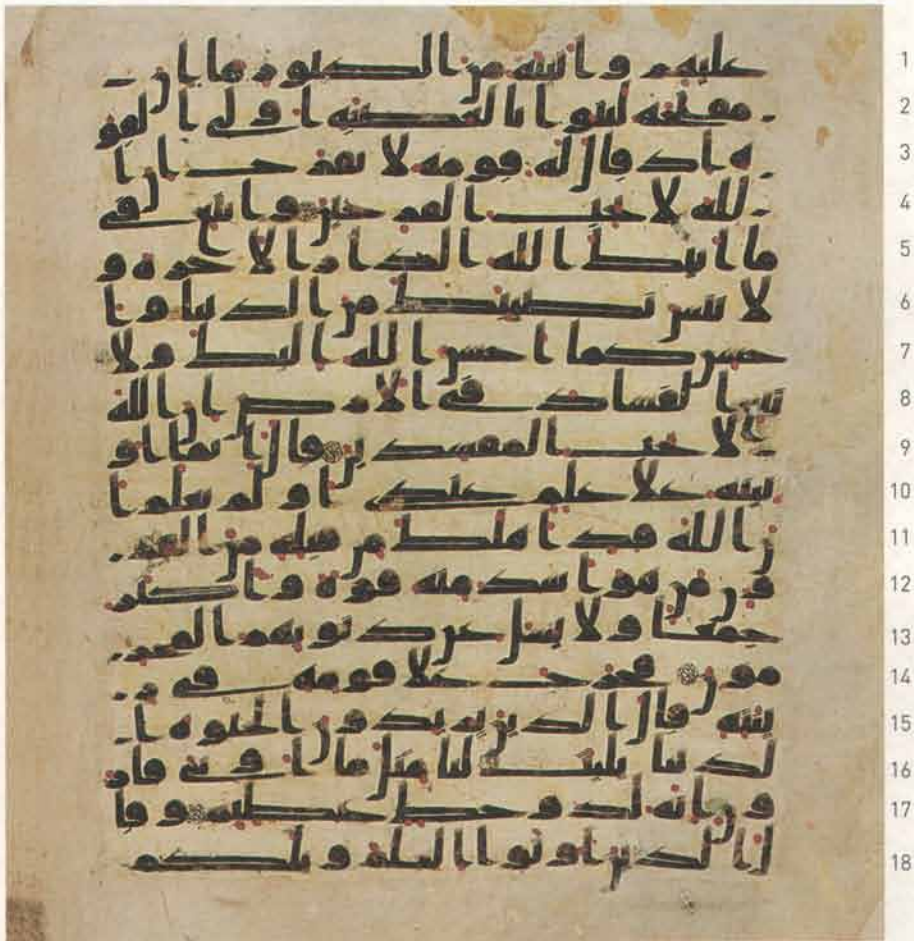 1 عليهم واتينه من الكنوز ما ان
2 مفتحه لتنوا بالعصبه اولي القو
3 ه اذ قال له قومه لا تفرح ان ا
4 لله لا يحب الفرحين وابتغ في
5 ما اتيك الله الدار الاخره و
6 لا تنس نصيبك من الدنيا وا
7 حسن كما احسن الله اليك ولا
8 تبغ الفساد في الارض ان الله
9 لا يحب المفسدين قال انما او
10 تيته علا علم عندي اولم يعلم ا
11 ن الله قد اهلك من قبله من القر
12 ون من هو اشد منه قوه واكثر
13 جمعا ولا يسل عن ذنوبهم المجر
14 مون فخرج علا قومه في ز
15 ينته قال الذين يريدون الحيوه ا
16 لدنيا يليت لنا مثل ما اوتي قر
17 ون انه لذو حظ عظيم وقا
18 ل الذين اوتوا العلم ويلكم